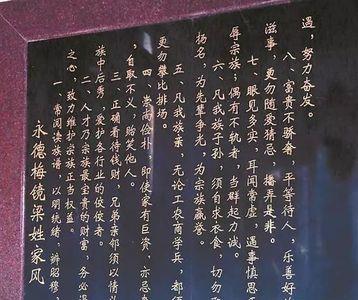 永德梅镜梁姓家风
一、常阅读族谱，以明统绪，辨昭穆，
之心，致力维护宗族正当权益。
二、人才乃宗族最宝贵的财富，务必
族中后秀，爱护各行业的佼佼者。
三、正确看待钱财，兄弟亲邻须以情义
，自取不义，贻笑他人。
四、崇尚俭朴，即使家有巨资，亦忌
更勿攀比排场。
五、凡我族亲，无论工农商学兵，都须
扬名，为先辈争光，为宗族赢誉。
六、凡我族子孙，须自求衣食，切勿
辱宗族；偶有不轨者，当群起力诫。
七、眼见多实，耳闻常虚，遇事慎思
滋事，更勿随爱猜忌，播弄是非。
八、富贵不骄奢，平等待人，乐善好
遇，努力奋发。